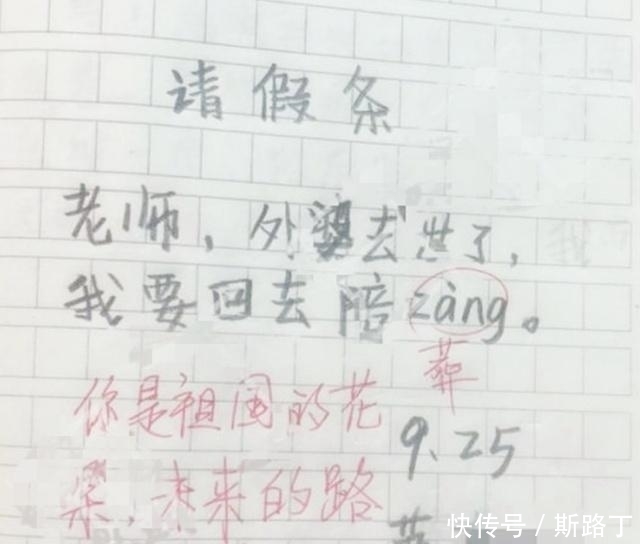 请假条
老师，外婆去世了，
我要回去陪zàng。
葬
你是祖国的花
朵，未来的路
9.25
快传号／斯路丁